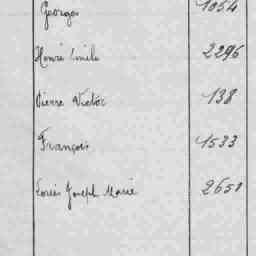 Georges 1054
Henri Emile 2296
Pierre Victor 138
François 1533
Louis Joseph Marie 2650